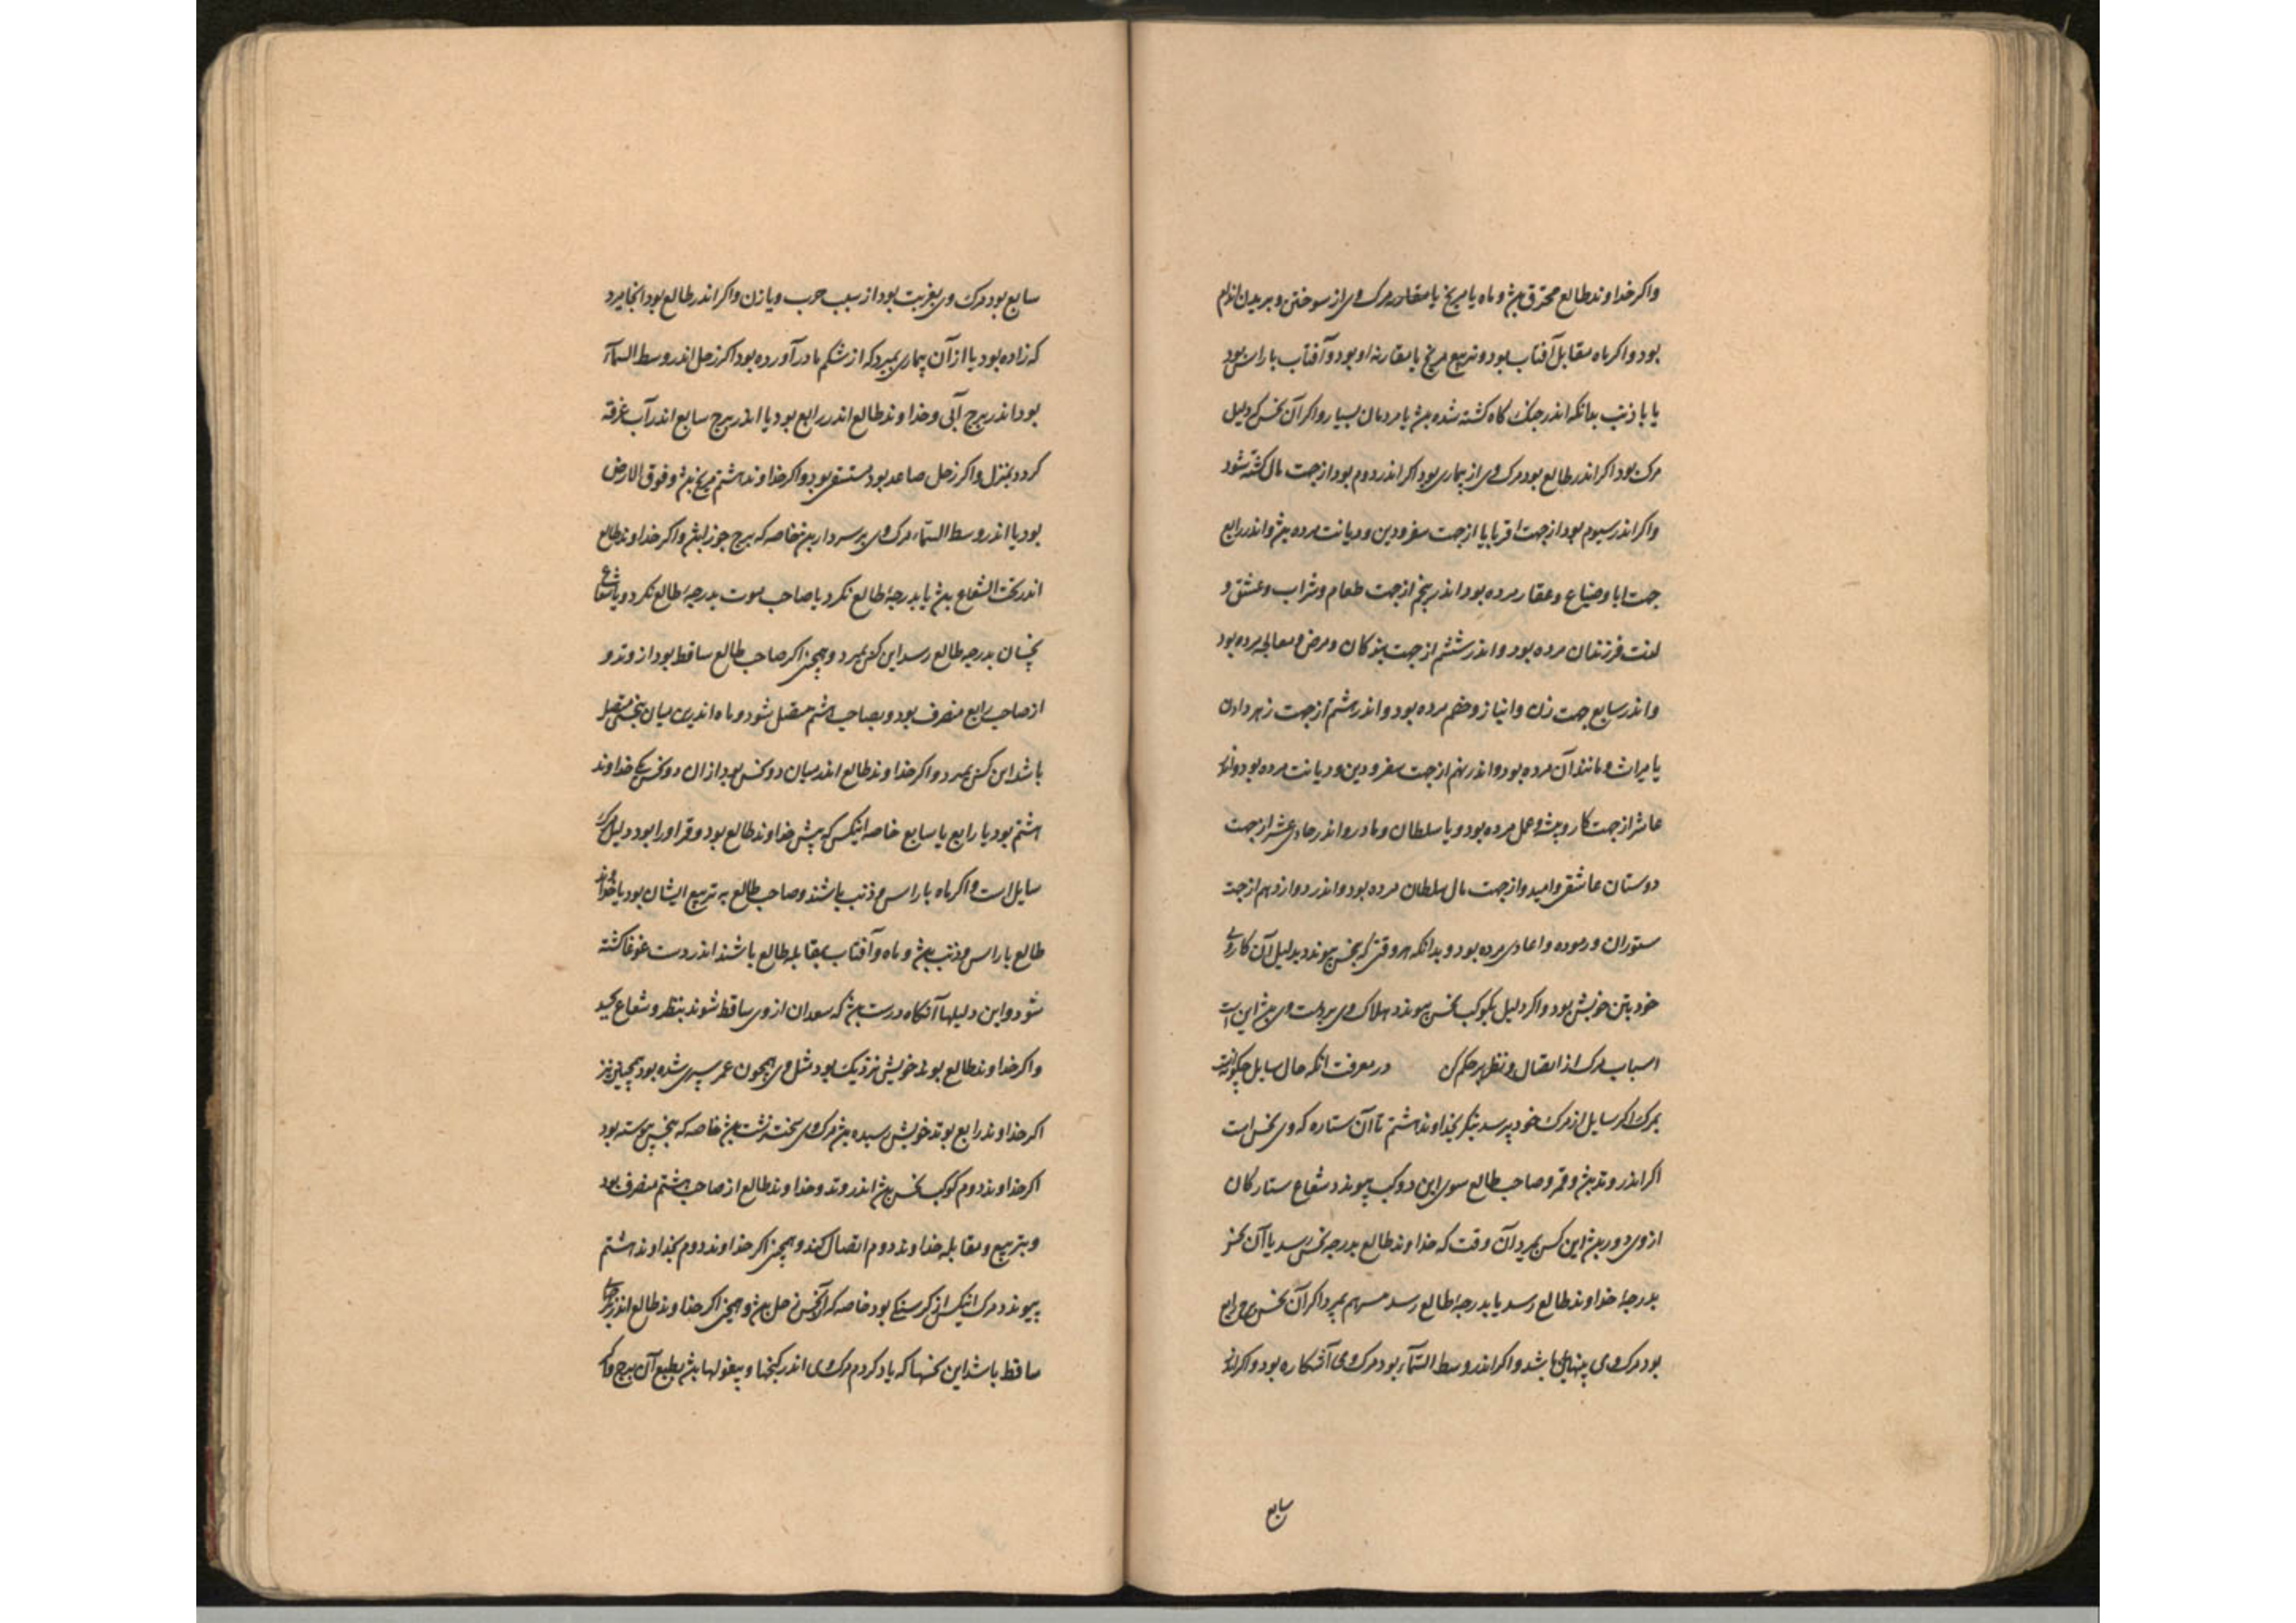 واکر خداوند طالع محترق بود و ماه یا مریخ یا مقارنه مرک وی از سوختن و بریدن اندام
بود و اکر ماه مقابل آفتاب بود و تربیع مریخ یا مقارنه او بود و آفتاب با راس بود
یا با ذنب بدانکه اندر جنک کاه کشته شده بود یا مردمان بسیار و اکر آن نحس که دلیل
مرک بود اکر اندر طالع بود مرک وی از بیماری بود اکر اندر دوم بود از جهت مال کشته شود
واکر اندر سیوم بود از جهت اقربا یا از جهت سفر و دین و دیانت مرده بود و اندر رابع
جهت ابا و ضیاع و عقار مرده بود اندر پنجم از جهت طعام و شراب و عشق و
فرزندان مرده بود و اندر ششم از جهت بندکان و مرض و معالجه مرده بود
و اندر سابع جهت زن و انباز و خصم مرده بود و اندر هشتم از جهت زهر دادن
یا میراث و مانند آن مرده بود و اندر نهم از جهت سفر و دین و دیانت مرده بود و اندر
عاشر از جهت کار و پیشه و عمل مرده بود و یا سلطان و مادر و اندر حادی عشر از جهت
دوستان عاشقی و امید و از جهت مال سلطان مرده بود و اندر دوازدهم از جهت
ستوران و اعادی مرده بود و بدانکه هر وقتی که بنحس پیوندد بدلیل آن کار وی
خود بتن خویش بود و اکر دلیل بکوکب نحس پیوندد هلاک وی بر دست وی بود این است
اسباب مرک از اتصال و نظر بر حکم کن در معرفت انکه حال سایل چکونه است
بمرک اکر سایل از مرک خود پرسد بنکر بخداوند هشتم تا آن ستاره که وی نحس است
اکر اندر وتد بود و قمر و صاحب طالع سوی این دو کوکب پیوندد و شعاع ستارکان
از وی دور بود این کس بمیرد آن وقت که خداوند طالع بدرجه نحس رسد یا آن نحس
بدرجه خداوند طالع رسد یا بدرجه طالع رسد هم بمیرد اکر آن نحس رابع
بود مرک وی پنهان باشد و اکر اندر وسط السماء بود مرک وی آشکاره بود و اکر اندر
سابع
سابع بود مرک وی بغربت بود از سبب حرب و یا زن و اکر اندر طالع بود انجا میرد
که زاده بود یا از آن بیماری بمیرد که از شکم مادر آورده بود اکر زحل اندر وسط السماء
بود اندر برج آبی و خداوند طالع اندر رابع بود یا اندر برج سابع اندر آب غرقه
کردد بمنزل و اکر زحل صاعد بود مستسقی بود و اکر خداوند هشتم مریخ بود و فوق الارض
بود یا اندر وسط السماء مرک وی بر سر دار بود خاصه که برج جوزا بود و اکر خداوند طالع
اندر تحت الشعاع بود یا بدرجه طالع نکرد یا صاحب موت بدرجه طالع نکرد و یا شعاع
نحسان بدرجه طالع رسد این کس بمیرد و همچنین اکر صاحب طالع ساقط بود از وتد و
از صاحب رابع منصرف بود و بصاحب هشتم متصل شود و ماه اندرین میان بنحس متصل
باشد این کس بمیرد و اکر خداوند طالع اندر میان دو نحس بود از ان دو نحس یکی خداوند
هشتم بود یا رابع یا سابع خاصه اینکس که پیش خداوند طالع بود و قمر او را بود دلیل مرک
سایل است و اکر ماه با راس و ذنب باشند و صاحب طالع به تربیع ایشان بود یا خداوند
طالع با راس و ذنب بود و ماه و آفتاب بمقابله طالع باشند اندر دست غوغا کشته
شود و این دلیلها آنکاه درست بود که سعدان از وی ساقط شوند بنظر و شعاع
واکر خداوند طالع بوتد خویش نزدیک بود مثل وی همچون عمر سپری شده بود همچنین نیز
اکر خداوند رابع بوتد خویش رسیده بود مرک وی سخت زشت بود خاصه که بنحس پیوسته بود
اکر خداوند دوم کوکب نحس بود اندر وتد و خداوند طالع از صاحب هشتم منصرف بود
و بتربیع و مقابله خداوند دوم اتصال کند و همچنین اکر خداوند دوم بخداوند هشتم
پیوندد مرک اینکس از کرسنکی بود خاصه که آن نحس زحل بود و همچنین اکر خداوند طالع اندر
ساقط باشد این نحسها که یاد کردم مرک وی اندر کنجها و بیغولها بود بطبع آن برج